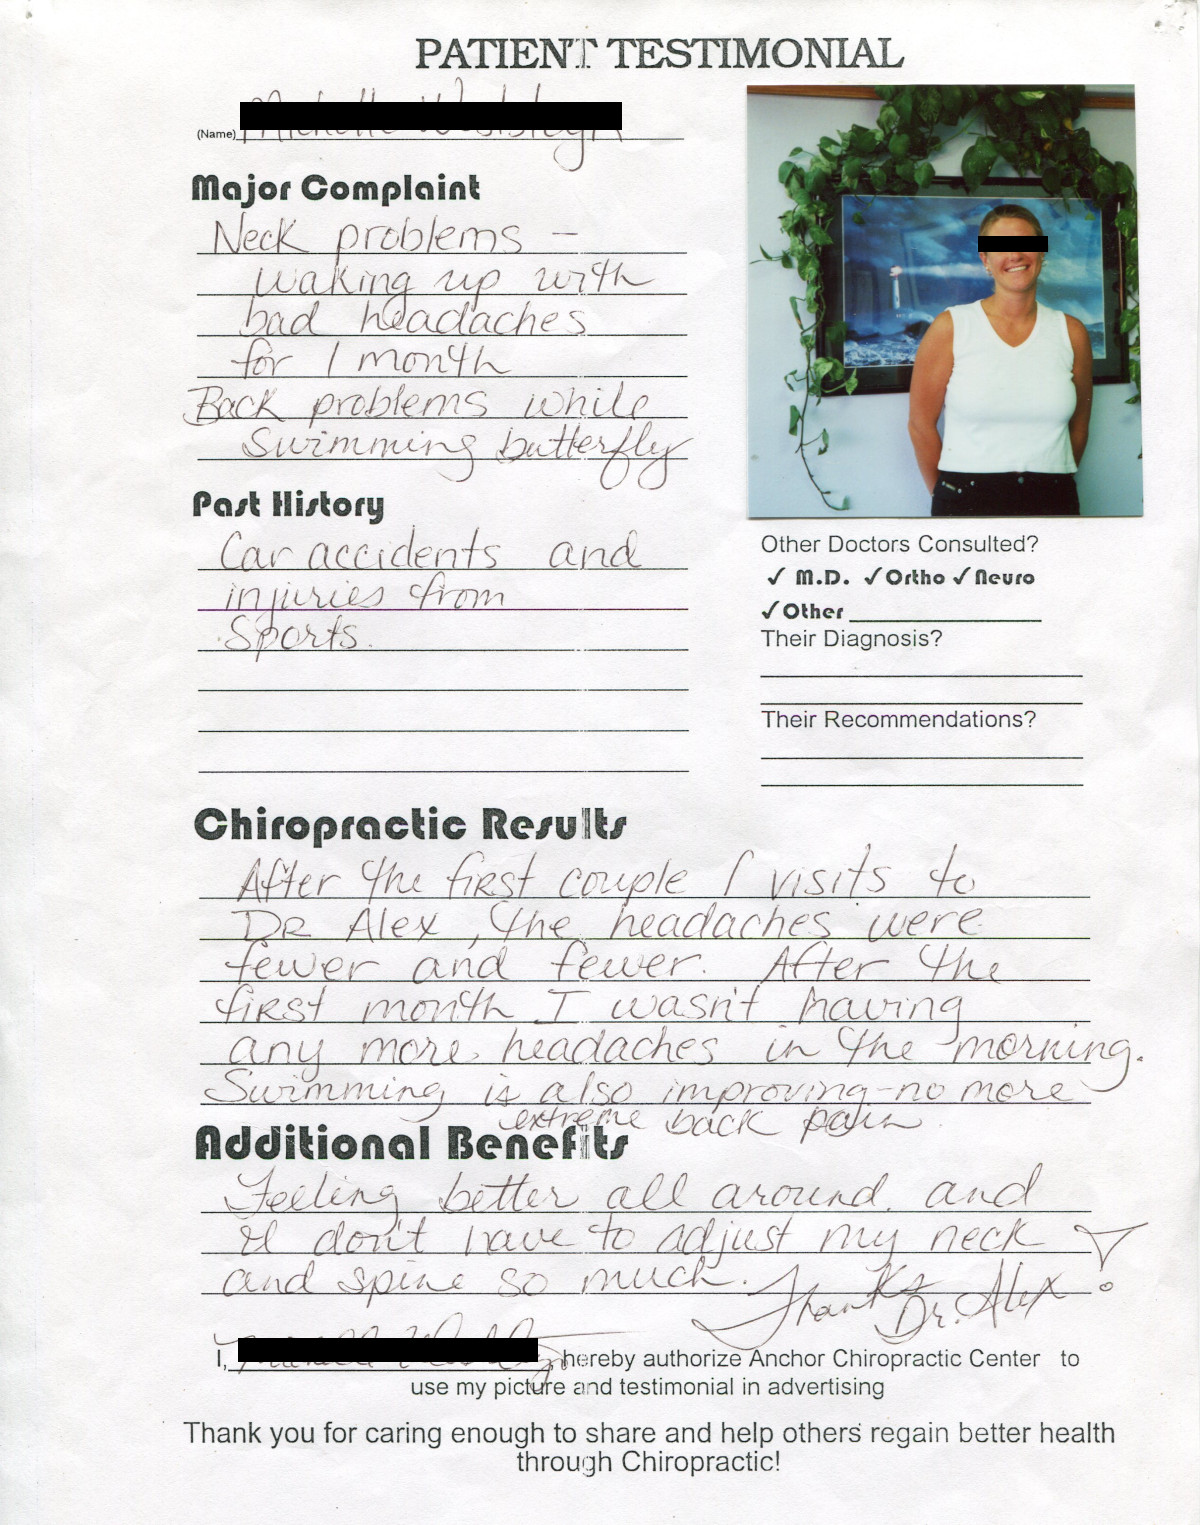 PATIENT TESTIMONIAL
(Name)
Major Complaint
Neck problems –
waking up with
bad headaches
for 1 month
Back problems while
swimming butterfly
Past History
Car accidents and
injuries from
Sports.
Other Doctors Consulted?
✓ M.D. ✓ Ortho ✓ Neuro
✓ Other
Their Diagnosis?
Their Recommendations?
Chiropractic Results
After the first couple visits to
DR Alex, the headaches were
fewer and fewer. After the
first month I wasn't having
any more headaches in the morning.
Swimming is also improving–no more
extreme back pain.
Additional Benefits
Feeling better all around and
I don't have to adjust my neck
and spine so much.
Thanks
Dr. Alex!
I, hereby authorize Anchor Chiropractic Center to
use my picture and testimonial in advertising
Thank you for caring enough to share and help others regain better health
through Chiropractic!